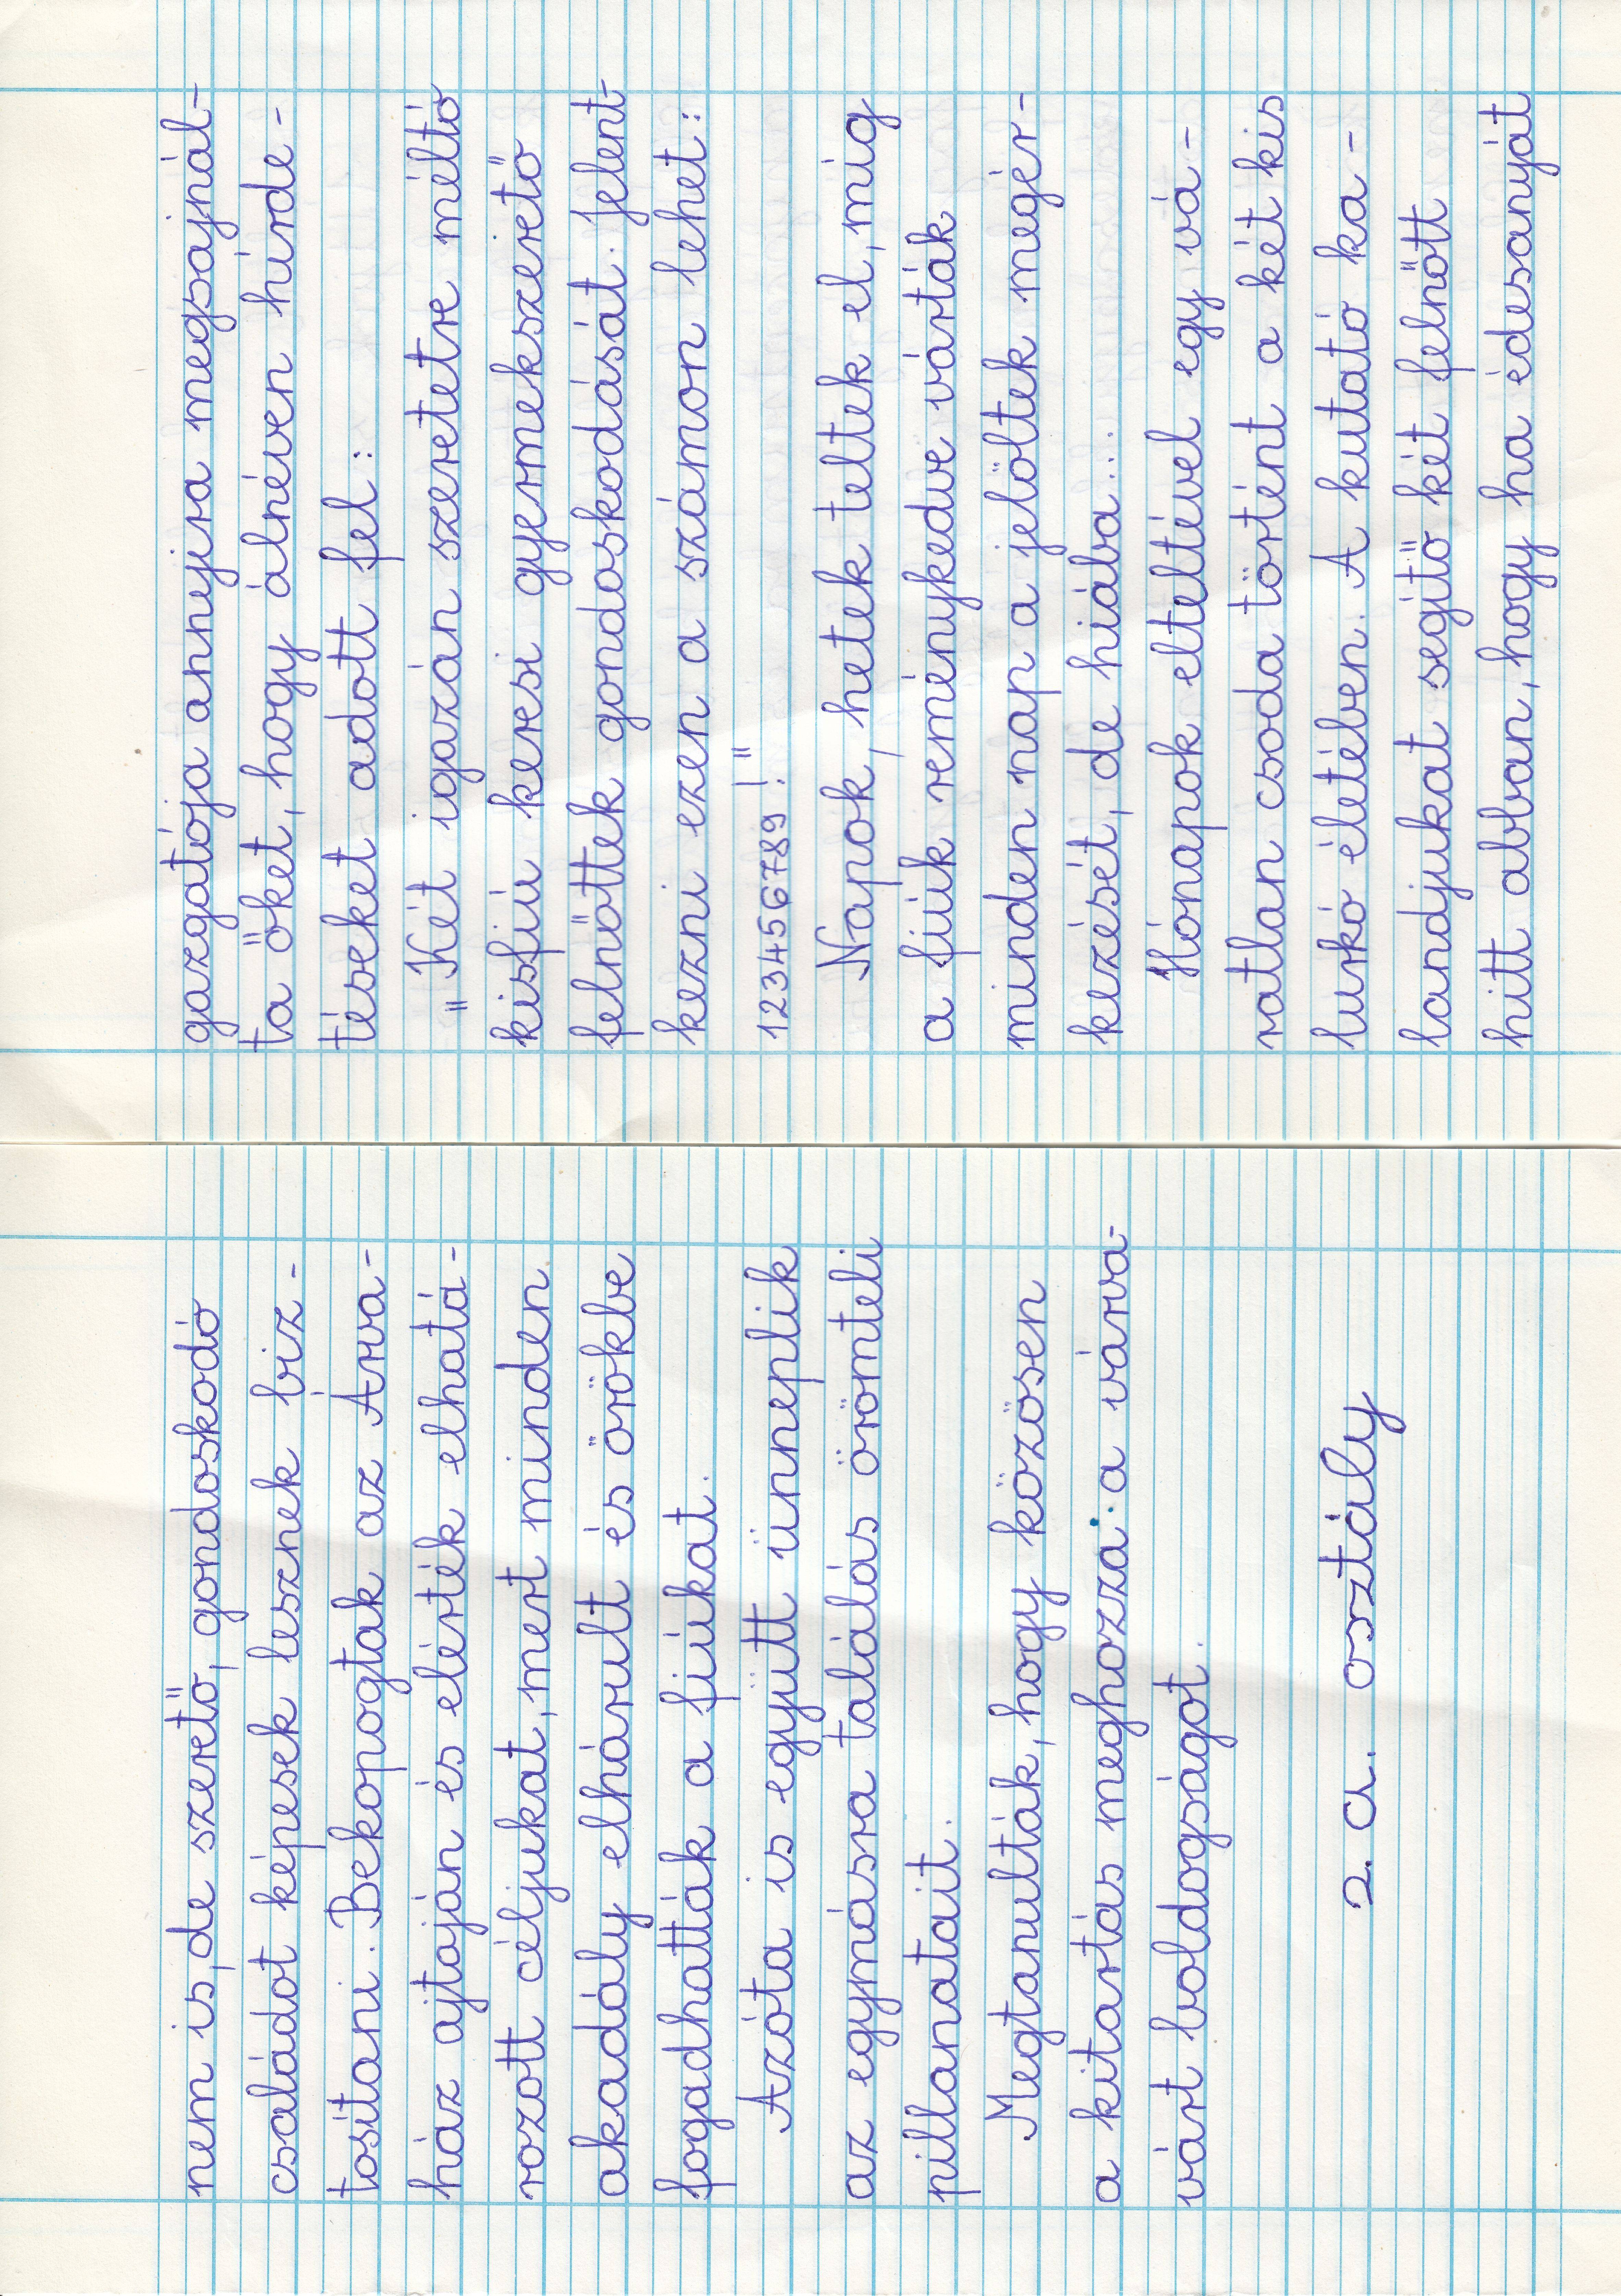 gazgatója annyira megsajnál-
ta őket, hogy álnéven hirde-
téseket adott fel:
"Két igazán szeretetre méltó
kisfiú keresi gyermekszerető
felnőttek gondoskodását. Jelent-
kezni ezen a számon lehet:
123456789!"
Napok, hetek teltek el, míg
a fiúk reménykedve várták
minden nap a jelöltek megér-
kezését, de hiába...
Hónapok elteltével egy vá-
ratlan csoda történt a két kis
lurkó életében. A kutató ka-
landjukat segítő két felnőtt
hitt abban, hogy ha édesanyját
nem is, de szerető, gondoskodó
családot képesek lesznek biz-
tosítani. Bekopogtak az Árva-
ház ajtaján és elérték elhatá-
rozott céljukat, mert minden
akadály elhárult és örökbe
fogadhatták a fiúkat.
Azóta is együtt ünneplik
az egymásra találás örömteli
pillanatait.
Megtanulták, hogy közösen
a kitartás meghozza a várva-
várt boldogságot.
2. a. osztály